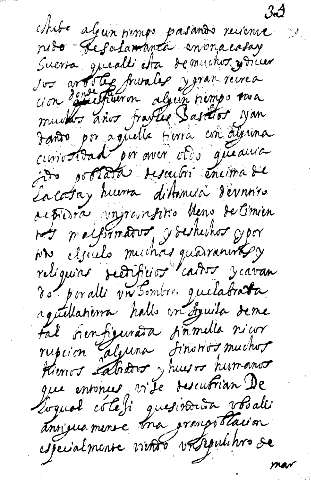 34
estube algun tiempo pasando veciene
nedo de Salamanca en vna casa y
huerta que alli esta de muchos y diver
sos arboles frutales y gran recrea
cion donde estubieron algun tiempo
muchos años frayles Basilios y an
dando por aquella tierra con alguna
curiosidad por aver oido que avia
sido poblada descubri encima de
la casa y huerta distancia de vn tiro
de piedra vn recinto lleno de cimien
tos mal formados y deshechos y por
todo el suelo muchas quadraturas y
reliquias de edificios caidos y cavan
do por alli vn hombre que labrava
aquella tierra hallo vn aguila de me
tal bien figurada sin mella ni cor
rupcion alguna sin otros muchos
hierros labrados y huesos humanos
que entonces vide descubrian De
lo qual colegi que sin duda vbo alli
antiguamente vna gran poblacion
especialmente viendo vn sepulchro de
mar